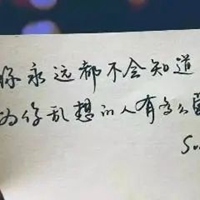 你永远都不会知道
为你乱想的人有多
Su